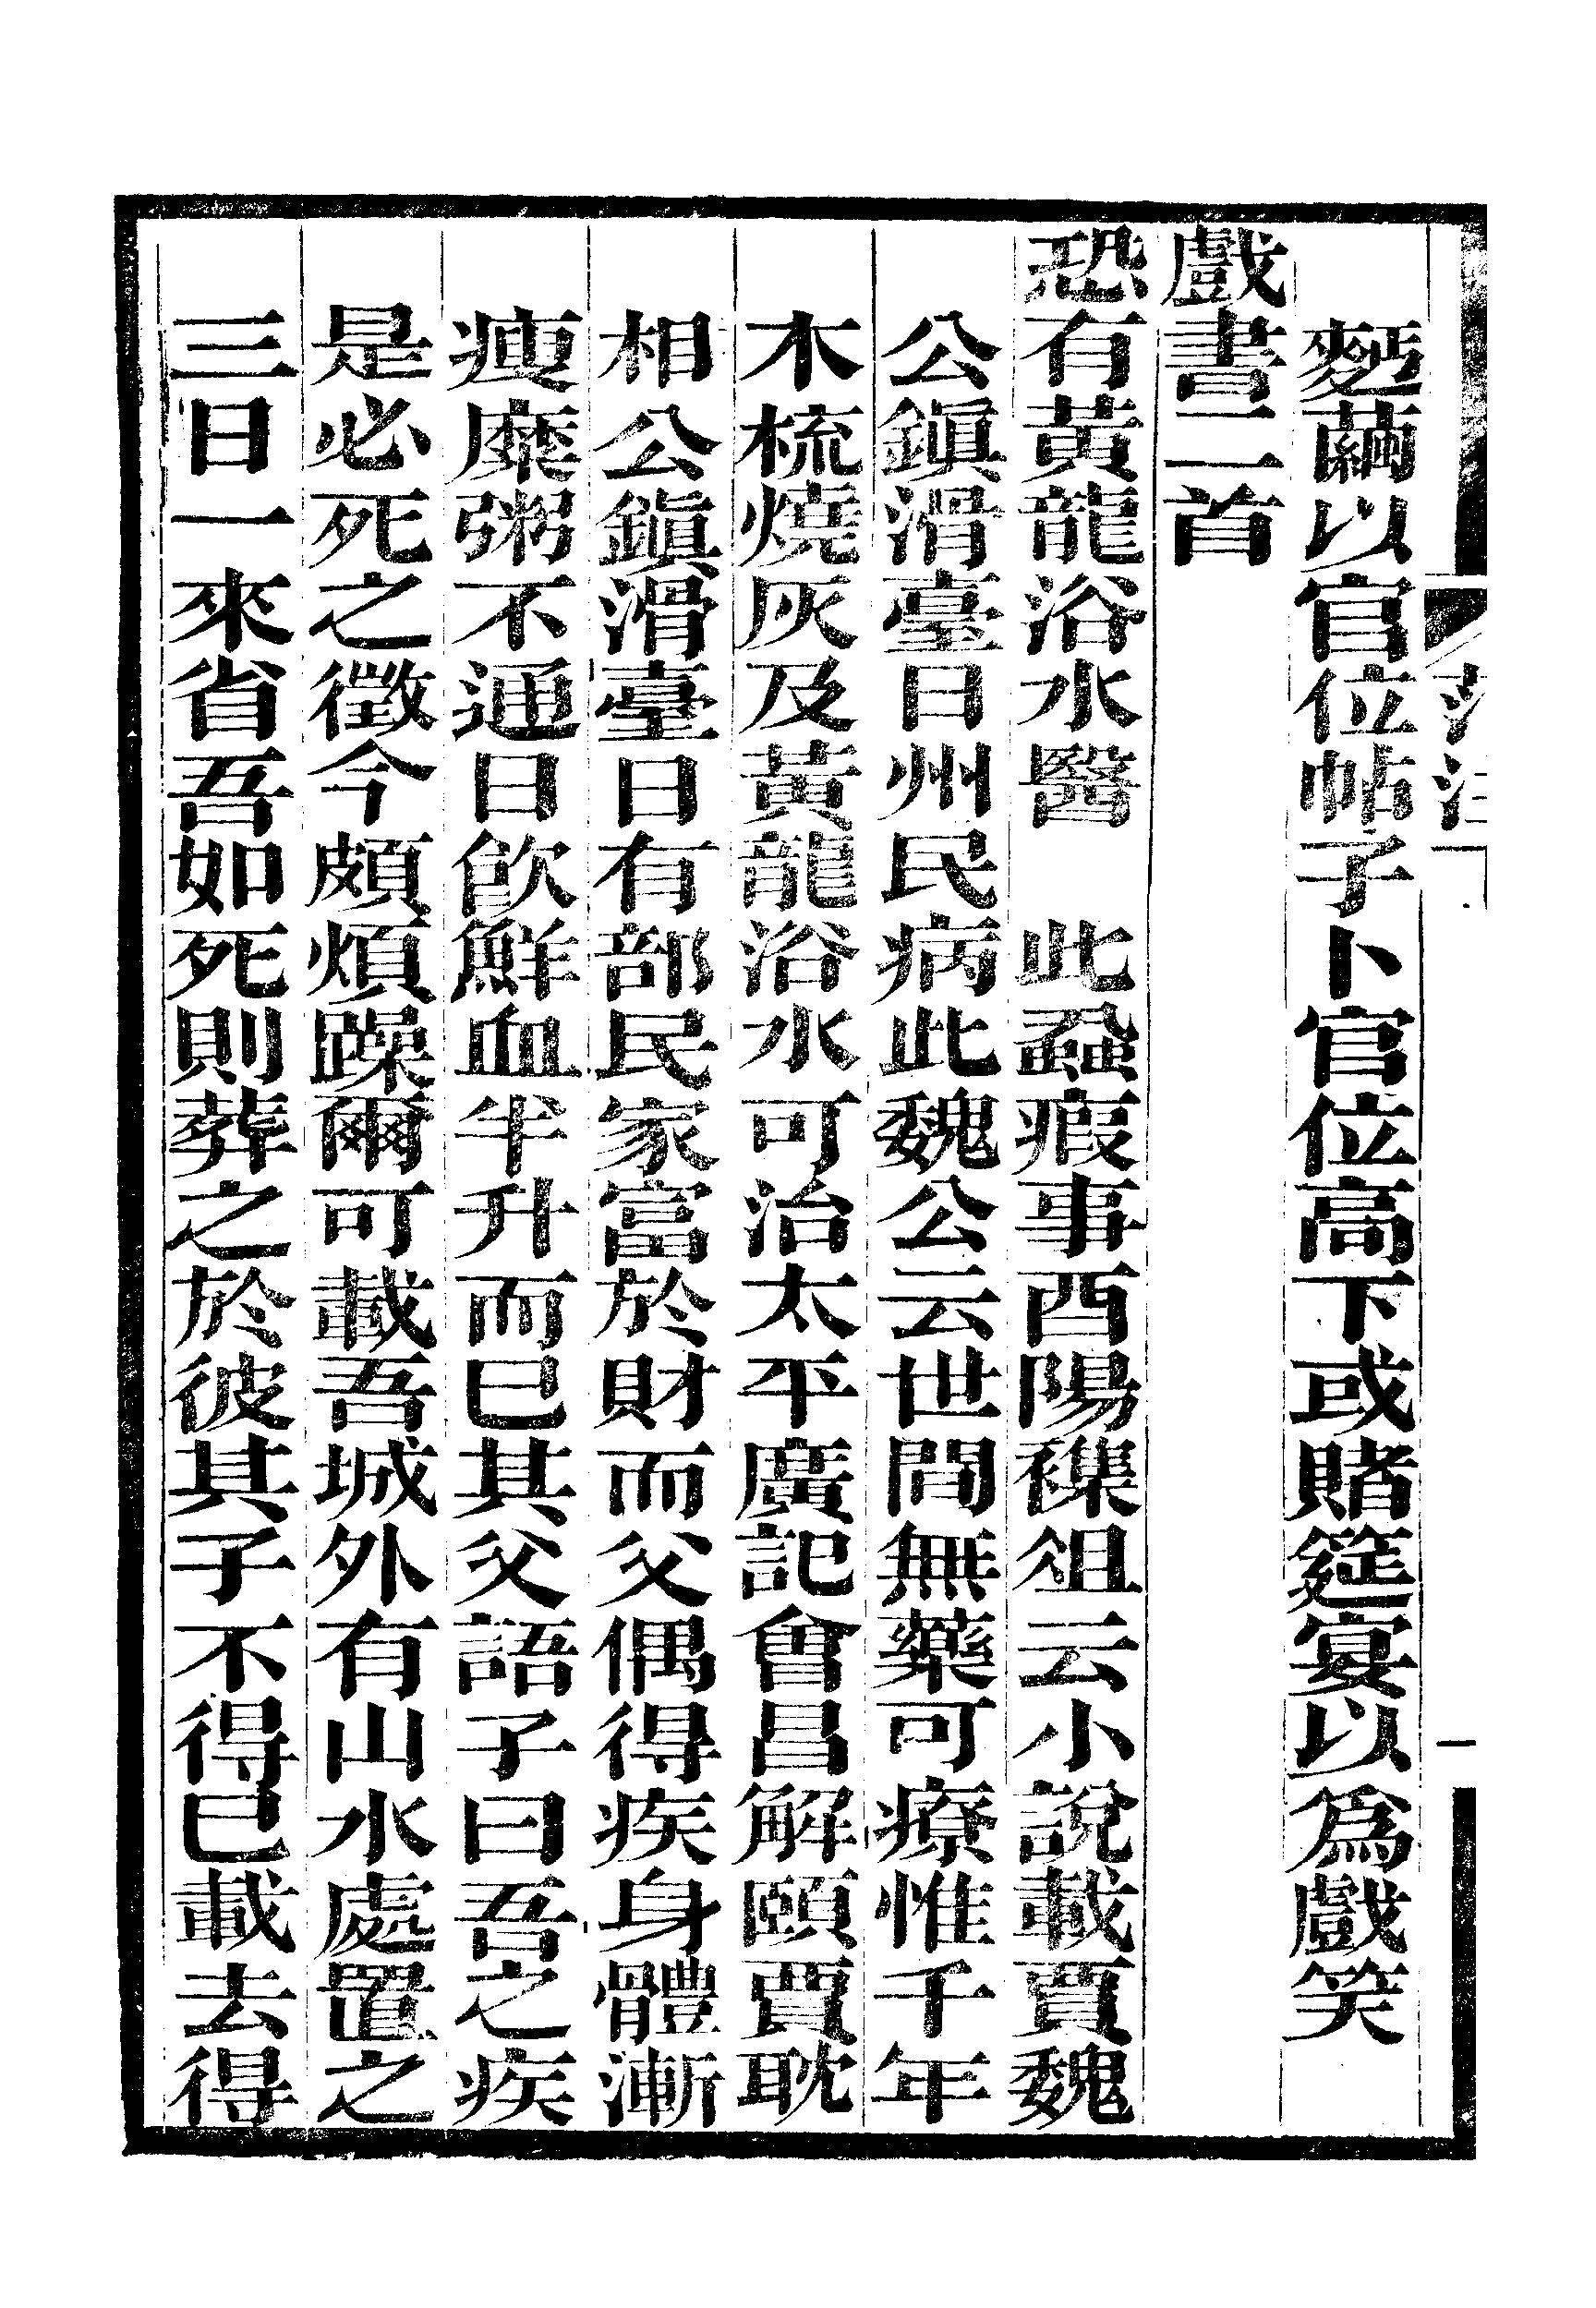 麪繭以官位帖子卜官位高下或賭筵宴以爲戲笑
戲書二首
恐有黃龍浴水醫　此蝨瘕事酉陽襍俎云小說載賈魏
公鎭滑臺日州民病此魏公云世間無藥可療惟千年
木梳燒灰及黃龍浴水可治太平廣記會昌解頤賈耽
相公鎭滑臺日有部民家富於財而父偶得疾身體漸
瘦糜粥不通日飲鮮血半升而已其父語子曰吾之疾
是必死之徵今頗煩躁爾可載吾城外有山水處置之
三日一來省吾如死則葬之於彼其子不得已載去得